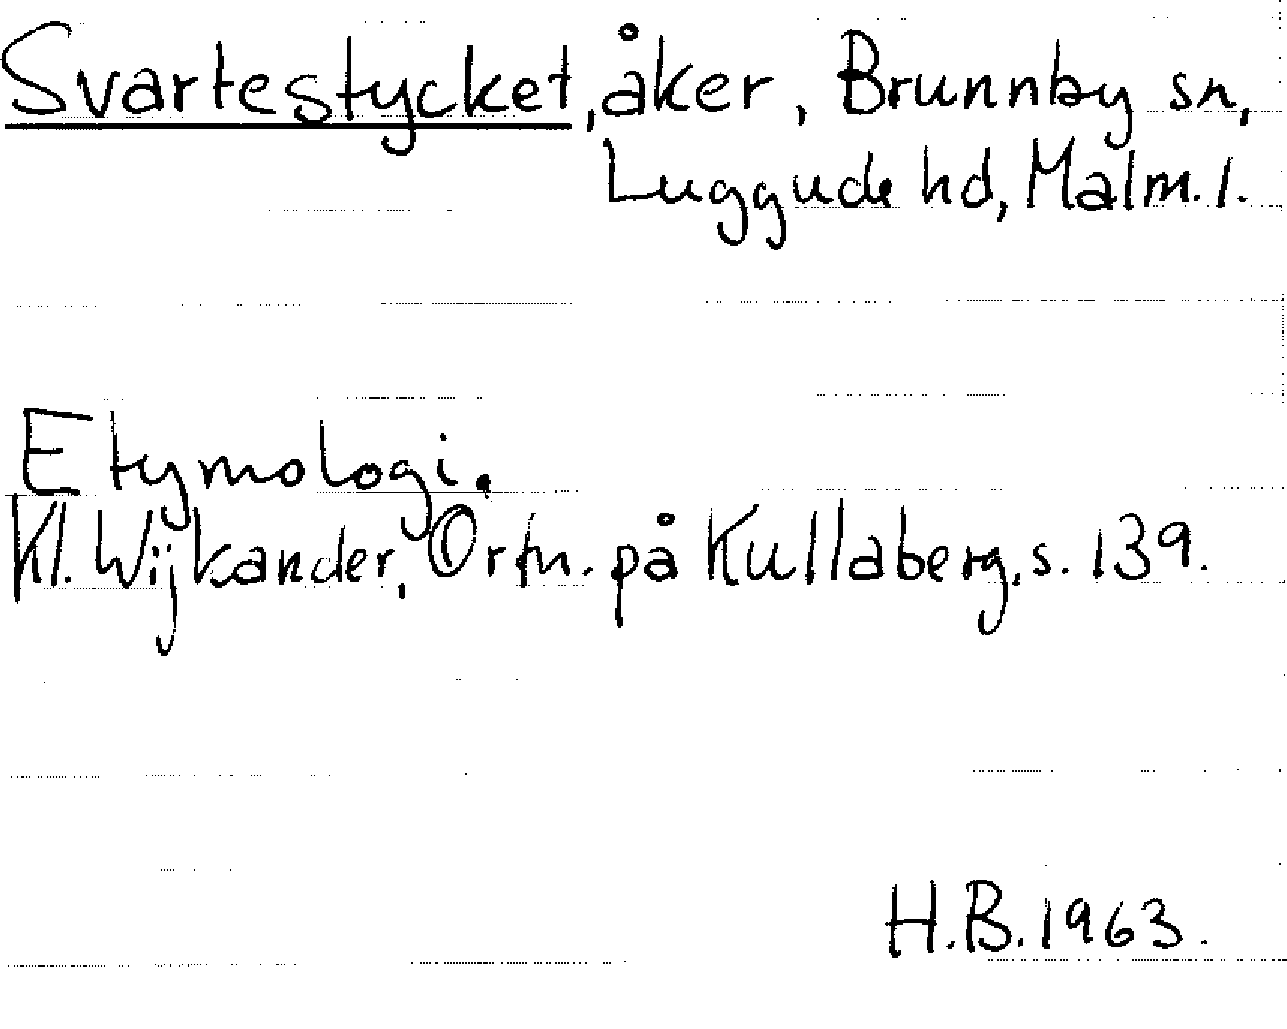 Svartestycket, åker, Brunnby sn,
Luggude hd, Malm. l.
Etymologi.
Kl. Wijkander, Ortn. på Kullaberg, s. 139.
H.B. 1963.